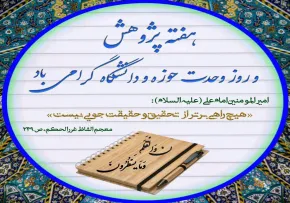 هفته پژوهش
و روز وحدت حوزه و دانشگاه گرامی باد
امیرالمومنین امام علی (علیه السلام):
«هیچ راهی برتر از تحقیق و حقیقت جویی نیست»
معجم الفاظ غررالحکم، ص ۲۴۹
ن والقلم
وما یسطرون